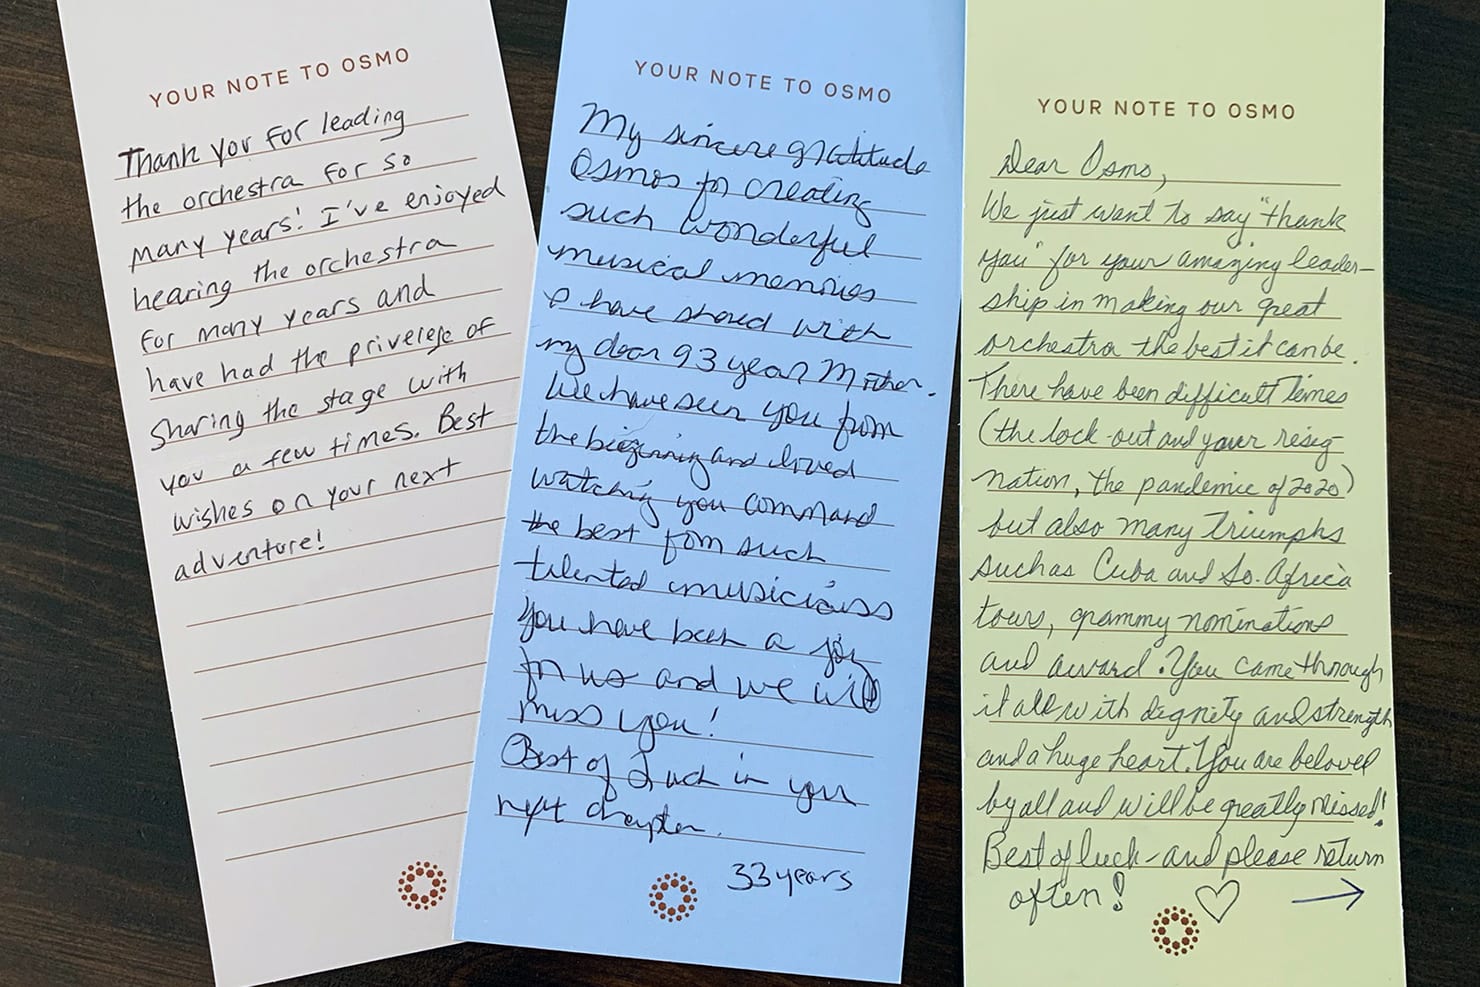 YOUR NOTE TO OSMO
Thank you for leading
the orchestra for so
many years! I've enjoyed
hearing the orchestra
for many years and
have had the priverege of
sharing the stage with
you a few times. Best
wishes on your next
adventure!
YOUR NOTE TO OSMO
My sincere gratitude
Osmos for creating
such wonderful
musical memories
I have shared with
my dear 93 year Mother.
We have seen you from
the beginning and loved
watching you command
the best from such
talented musicians
You have been a joy
for us and we will
miss you!
Best of Luck in your
next chapter.
33 years
YOUR NOTE TO OSMO
Dear Osmo,
We just want to say "thank
you" for your amazing leader-
ship in making our great
orchestra the best it can be.
There have been difficult times
(the lock-out and your resig-
nation, the pandemic of 2020)
but also many triumphs
such as Cuba and So. Africa
tours, grammy nominations
and award. You came through
it all with dignity and strength
and a huge heart. You are beloved
by all and will be greatly missed!
Best of luck - and please return
often! ♡ →